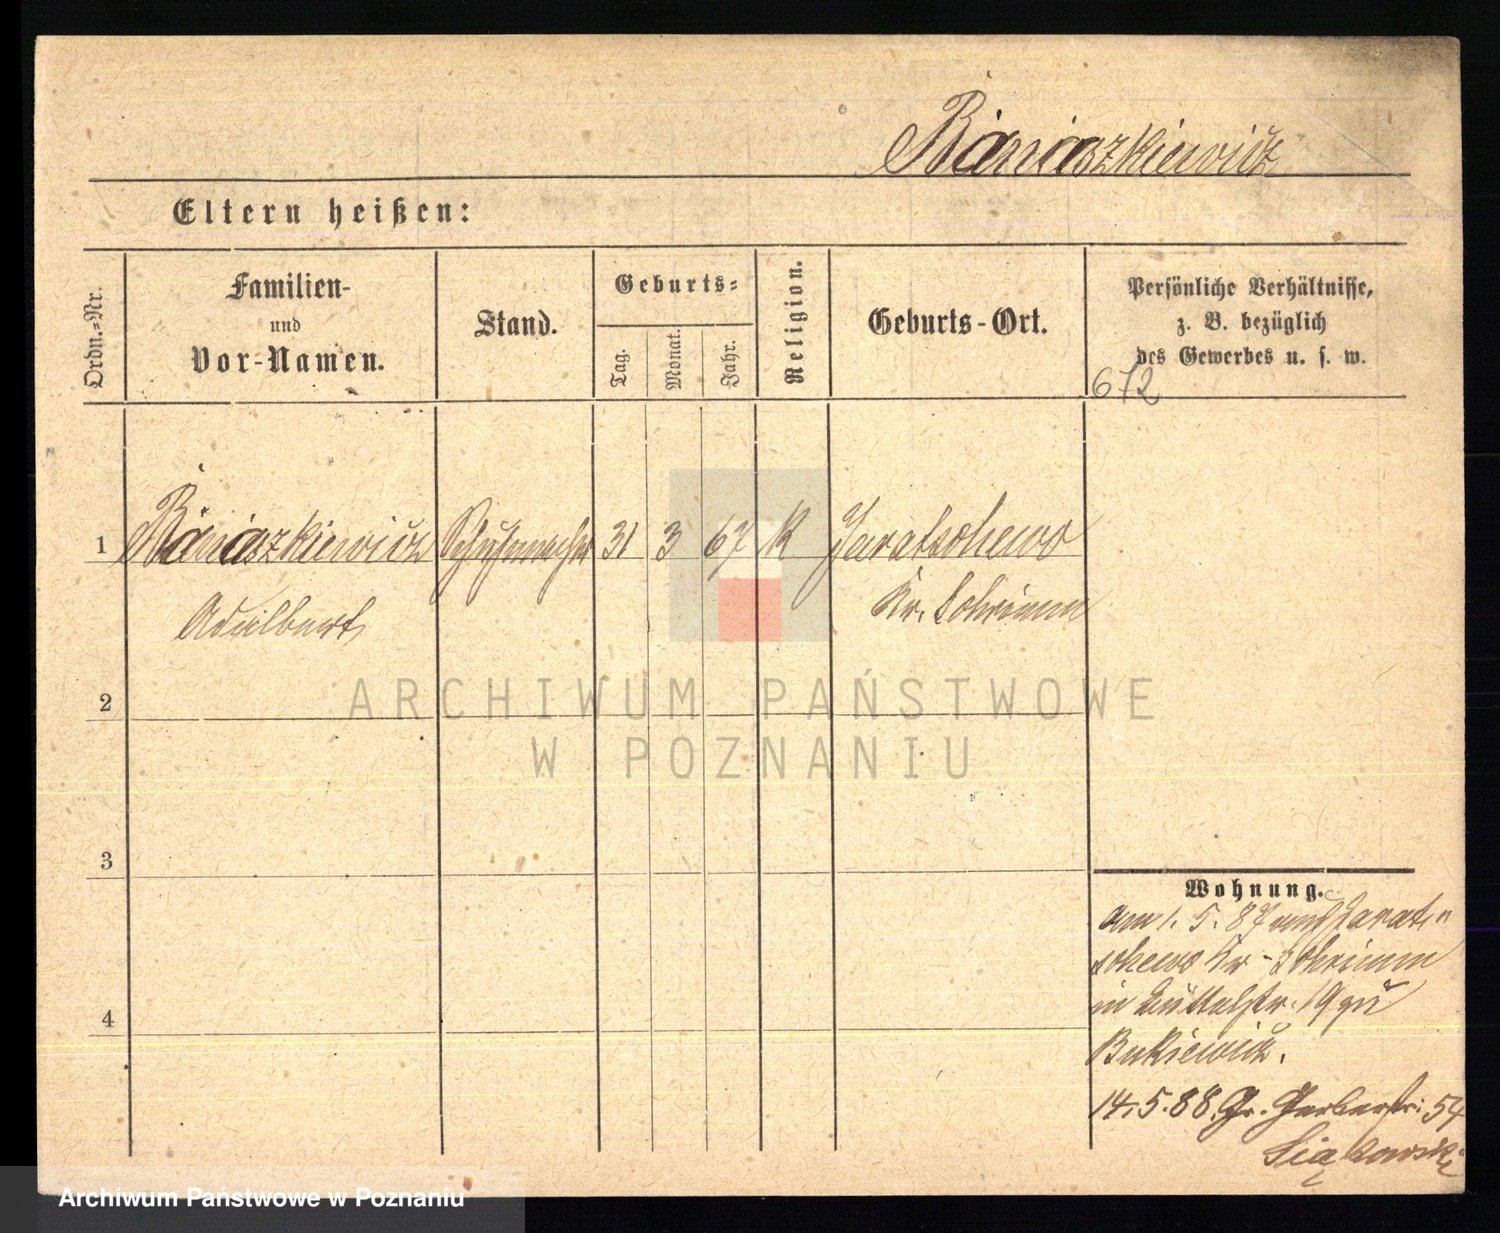 Banaszkiewicz
Eltern heißen:
Ordn.-Nr.
Familien-
und
Vor-Namen.
Stand.
Geburts-
Tag.
Monat.
Jahr.
Religion.
Geburts-Ort.
Persönliche Verhältnisse,
z. B. bezüglich
des Gewerbes u. s. w.
672
1 Banaszkiewicz Schuhmacher 31 3 67 K Jaratschewo
Adalbert Kr. Schrimm
ARCHIWUM PAŃSTWOWE
W POZNANIU
2
3
4
Wohnung.
am 1. 5. 87 aus Jarat-
schewo Kr. Schrimm
in Büttelstr. 19 zu
14. 5. 88. Gr. Gerberstr: 54
Archiwum Państwowe w Poznaniu